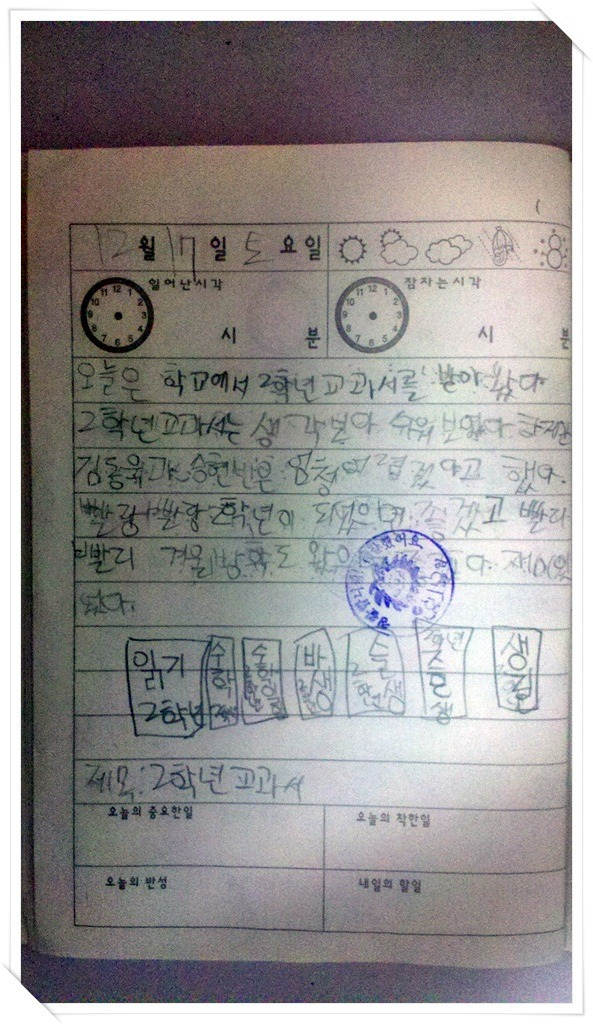 12월 17일 토요일
일어난시각 잠자는시각
시 분 시 분
오늘은 학교에서 2학년교과서를 받아 왔다
2학년교과서는 생각보다 쉬워 보였다. 하지만
김동욱과 승현반은 엄청 어렵겠다고 했다.
빨랑빨랑 2학년이 되었으면 좋겠고 빨리
빨리 겨울방학도 왔으 다. 재미있
었다.
읽기 2학년 수학 2학년 수학 2학년 바생 슬생 2학년 2학년 즐생 생길
제목:2학년교과서
오늘의 중요한일 오늘의 착한일
오늘의 반성 내일의 할일